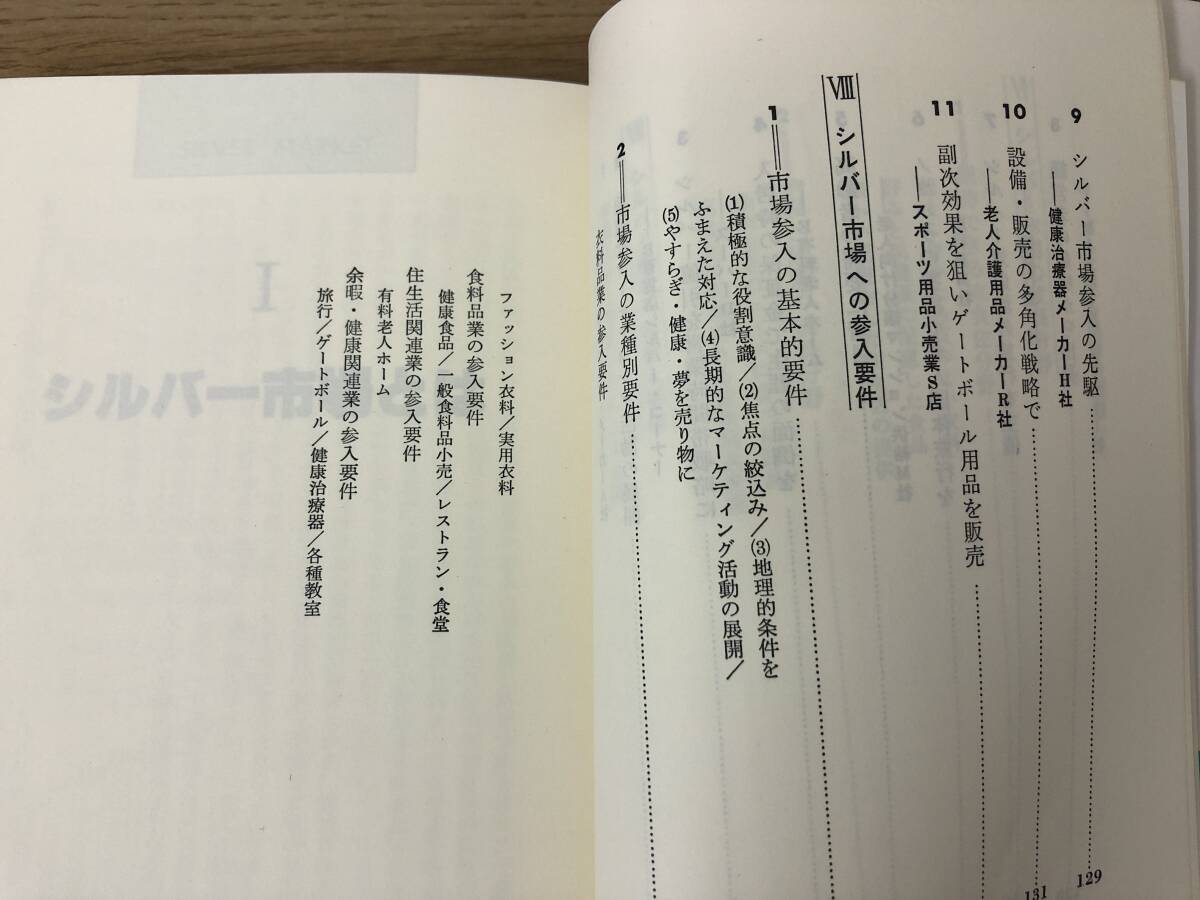 9 シルバー市場参入の先駆……129
——健康治療器メーカーH社
10 設備・販売の多角化戦略で……131
——老人介護用品メーカーR社
11 副次効果を狙いゲートボール用品を販売……
——スポーツ用品小売業S店
Ⅷ シルバー市場への参入要件
1＝市場参入の基本的要件……
(1)積極的な役割意識/(2)焦点の絞込み/(3)地理的条件を
ふまえた対応/(4)長期的なマーケティング活動の展開/
(5)やすらぎ・健康・夢を売り物に
2＝市場参入の業種別要件……
衣料品業の参入要件
ファッション衣料/実用衣料
食料品業の参入要件
健康食品/一般食料品小売/レストラン・食堂
住生活関連業の参入要件
有料老人ホーム
余暇・健康関連業の参入要件
旅行/ゲートボール/健康治療器/各種教室
I
シルバー市場